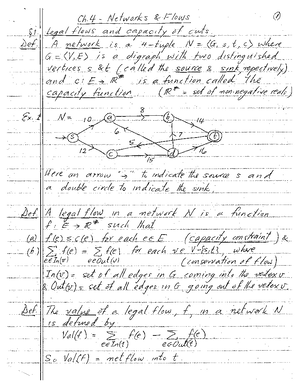 Ch.4 - Networks & Flows
①
§1 Legal flows and capacity of cuts.
Def A network is a 4-tuple N = (G, s, t, c) where
G = (V, E) is a digraph with two distinguished
vertices s & t (called the source & sink respectively)
and c: E → R* is a function called the
capacity function. (R* = set of non-negative reals)
Ex. 1 N =
10 8 14
s a b t
6 7
12 15 16
c 5 d
Here an arrow "→" to indicate the source s and
a double circle to indicate the sink.
Def A legal flow in a network N is a function
f: E → R* such that
(a) f(e) ≤ c(e) for each e∈E (capacity constraint) &
(b) Σ f(e) = Σ f(e) for each v∈V-{s,t}, where
e∈In(v) e∈Out(v) (conservation of flow)
In(v) = set of all edges in G coming into the vertex v
& Out(v) = set of all edges in G, going out of the vertex v.
Def. The value of a legal flow, f, in a network N
is defined by
Val(f) = Σ f(e) - Σ f(e)
e∈In(t) e∈Out(t)
So Val(f) = net flow into t